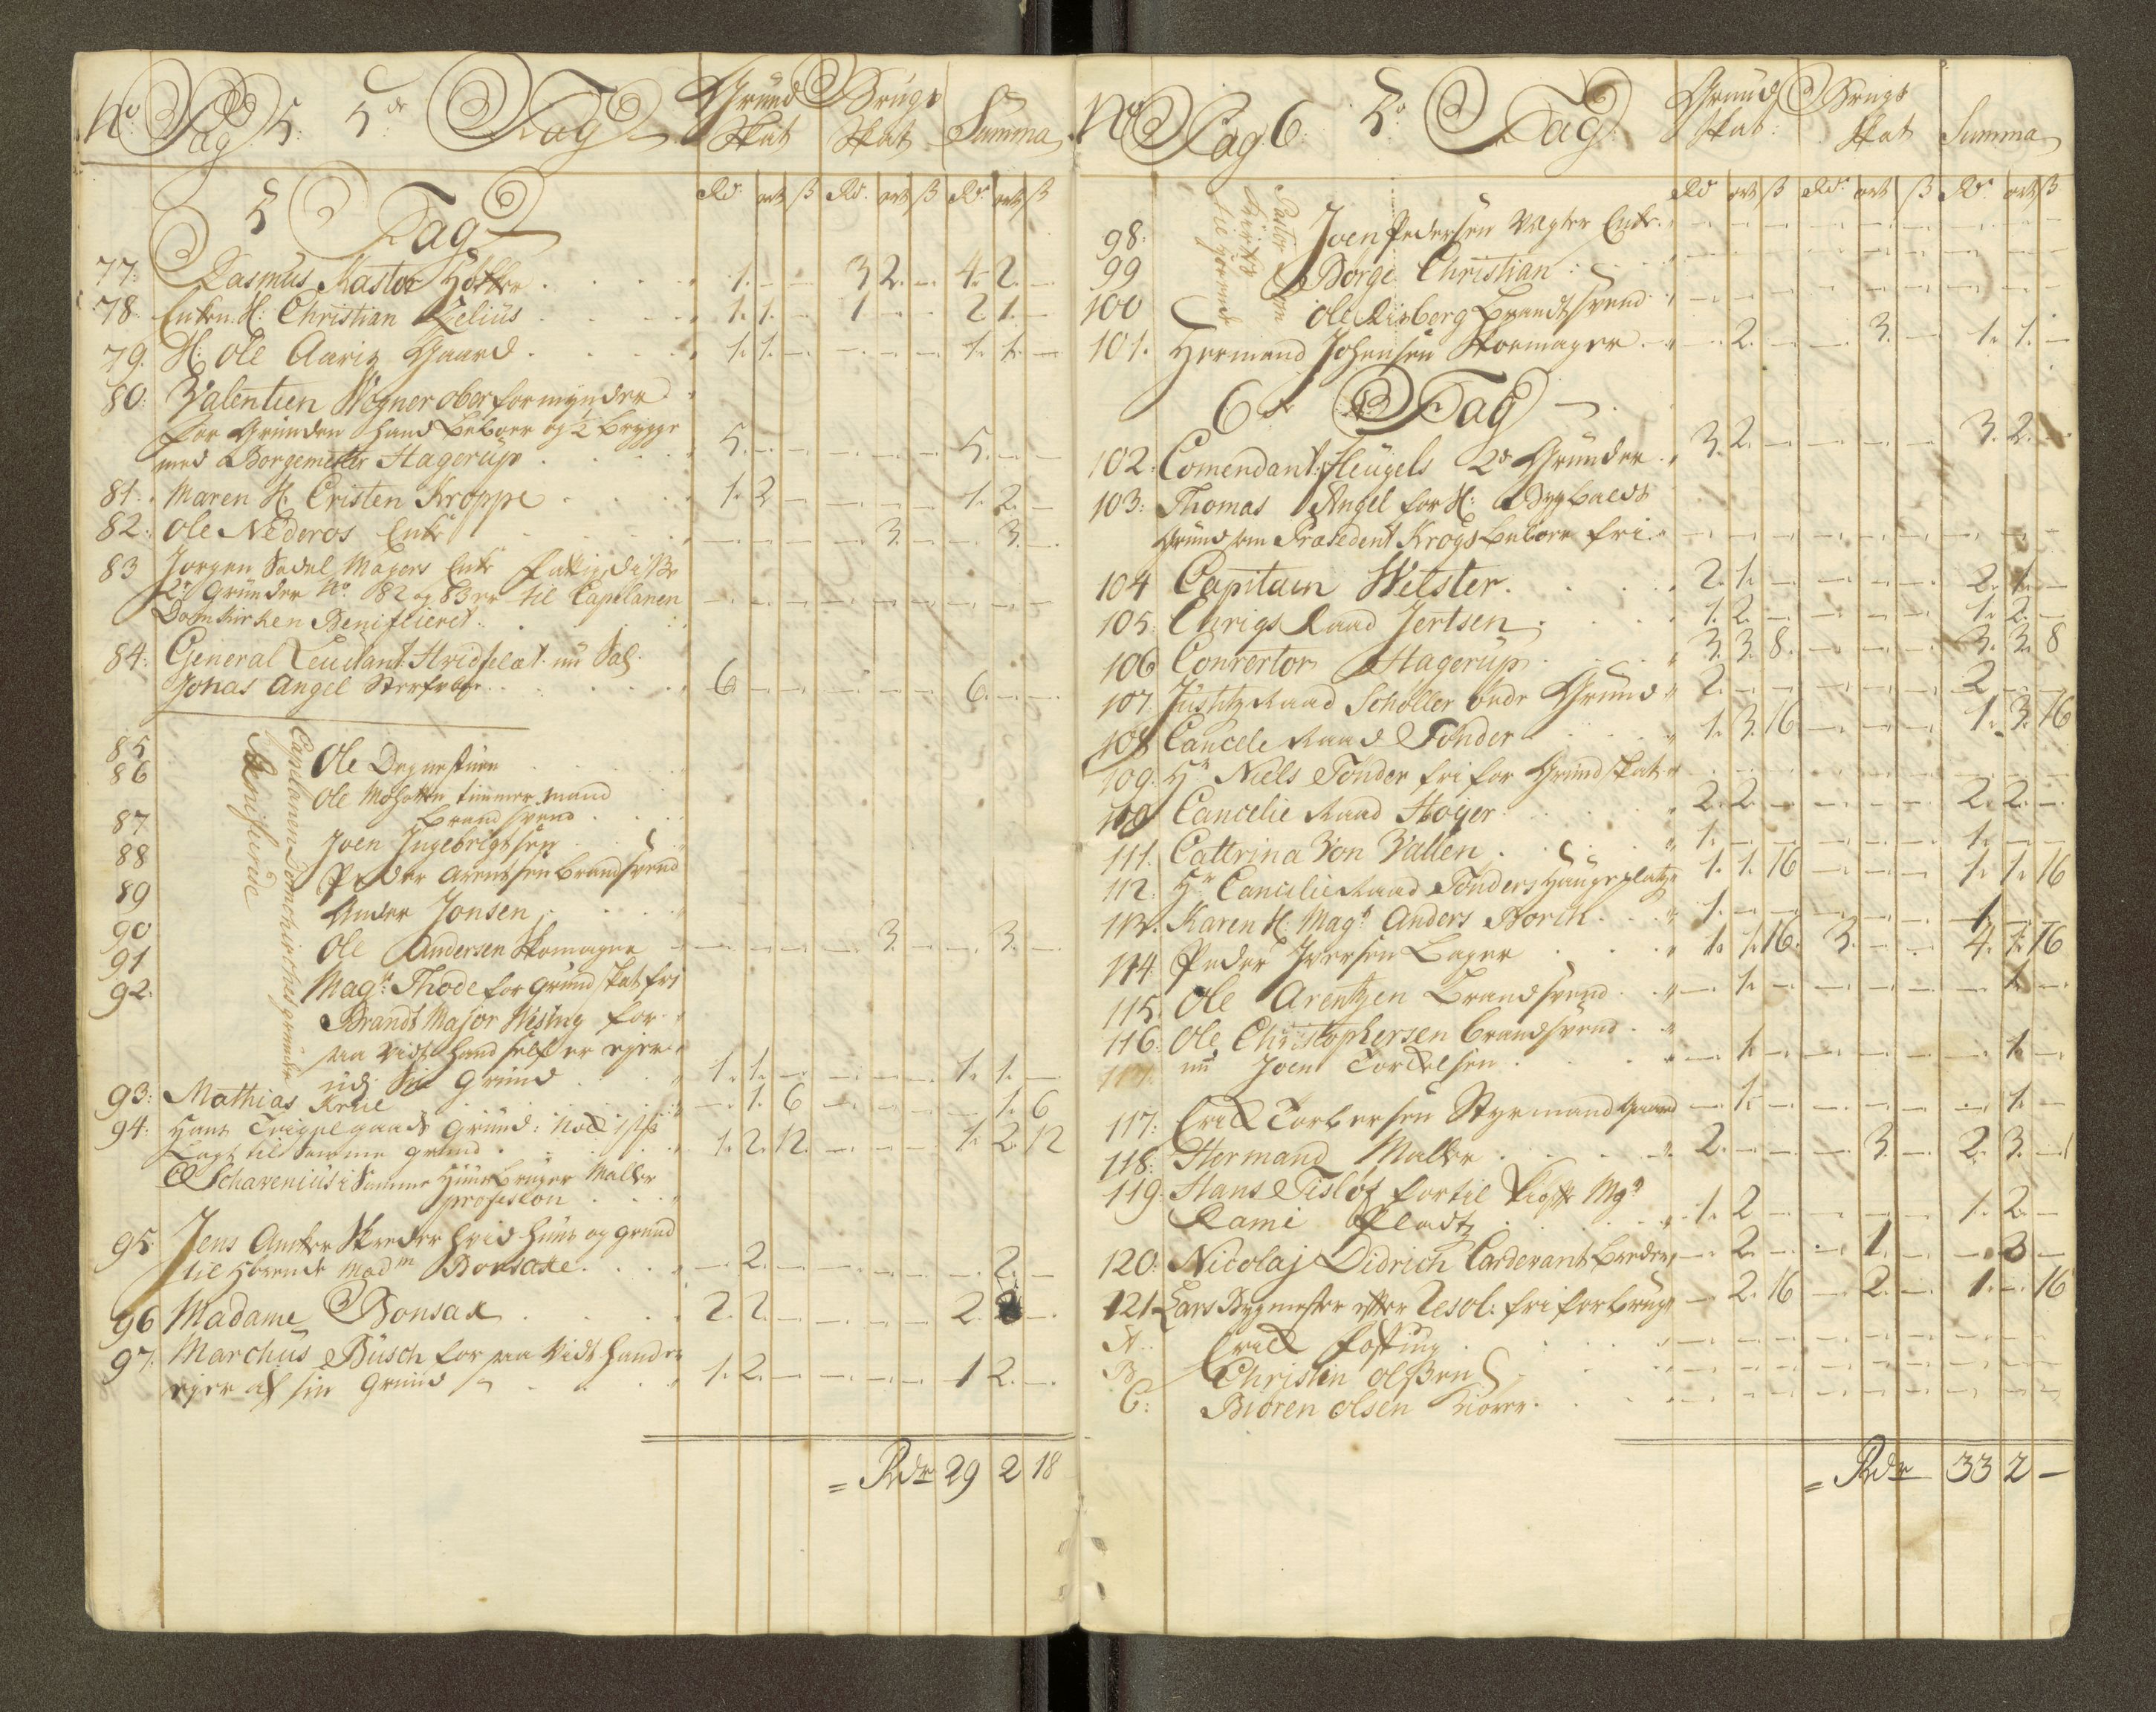 No. Pag 5: 5de Tag Grund Skat Brugs Skat Summa
5 Tag Rd. ort ß Rd. ort ß Rd. ort ß
77: Rasmus Kastor 1. — — 3 2. — 4. 2. —
78. Enken H: Christian Zelius 1. 1. — 1 — — 2 1. —
79. H: Ole Aarig Gaard 1. 1. — — — — 1. 1. —
80: Valentien Wogner oberformynder
for Grunden hand beboer og ½ brygge
med Borgemester Hagerup 5. — — — — — 5. — —
81. Maren H. Cristen Kroppe 1. 2 — — — — 1. 2. —
82: Ole Nederos Enke — — — — 3. — — 3. —
83 Jorgen Sadel Magers Enke fattig, disse
2de Grunder No. 82 og 83 er til Capelanen
Domkirken Benificieret — — — — — — — — —
84: General Leutant Hvidfelat nu Sal.
Jonas Angel 6 — — — — — 6. — —
Capelanen Domchirches grunde
Benificerede
85 Ole
86 Ole timmermand
brandsvend
87 Joen Ingebrigtsen
88 Peder Arentsen brandsvend
89 Ander Jonsen
90 Ole Andersen Skomager — — — — 3. — — 3. —
91 Magr. Thode for grund skat fri
92. Brandt Major Wesing for
saa vidt hand self er eyer
udj sin Grund 1. 1. — — — — 1. 1. —
93: Mathias Krüe — 1. 6 — — — — 1. 6
94: Hans gaards Grund:
Lagt til samme grund 1. 2. 12. — — — 1. 2. 12
Schavenius i samme Huus bruger Maller
profesion
95 Jens Skreder hvis Huus og grund
til horende Madm Bonsaxe — 2. — — — — — 2. —
96 Madame Bonsax 2. 2. — — — — 2. 2 —
97. Marchus Busch for saa vidt hand er
eyer af sin Grund 1. 2. — — — — 1 2. —
= Rdr 29 2 18
No Pag 6: 5. Tag Grund Skat: Brugs Skat Summa
Rd ort ß Rd. ort ß Rd. ort ß
98: Joen Pedersen Vegter Enke — — — — — — — — —
99 Borge Christian — — — — — — — — —
100 Ole Risberg Brandtsvend — — — — — — — — —
101. Hermand Johansen Skoemager — 2. — — 3. — 1. 1. —
6te Tag
102: Comendant Fleugels 2de Grunder 3. 2. — — — — 3. 2. —
103: Thomas Angel for H:
Grund som Præsedent Krogs beboer fri — — — — — — — — —
104 Capitain Welster 2. 1. — — — — 2. 1. —
105: Chrigs Raad Jertsen 1. 2. — — — — 1. 2. —
106 Conrertor Hagerup 3. 3. 8. — — — 3. 3. 8
107. Justitz Raad Scholler øude Grund 2. — — — — — 2. — —
108 Cancele Raad Tonder 1. 3. 16 — — — 1. 3. 16
109. Hr. Niels Tonder fri for Grundskat — — — — — — — — —
110 Cancelie Raad Hoyer 2. 2. — — — — 2. 2. —
111. Cattrina Von Vallen 1. — — — — — 1. — —
112. Hr. Cancelie Raad Tonders Haugeplatz 1. 1. 16 — — — 1. 1. 16
113. Karen H: Magr. Anders Borch 1. — — — — — 1 — —
114. Peder Iversen Bager 1. 1. 16. 3. — — 4. 1. 16
115. Ole Arentzen Brandsvend — 1. — — — — — 1 —
116: Ole Christophersen Brandsvend
nu Joen Torkelsen — 1. — — — — — 1. —
117: Erick Torbersen Styrmand — 1. — — — — — 1. —
118: Hermand Maller 2. — — — 3. — 2. 3. —
119: Hans Tislof
Rami Pladtz 1. 2 — — — — 1. 2. —
120: Nicolaj Didrich Corderants — 2. — — 1. — — 3 —
121. Lars Bygmester efter Resol: fri for brug — 2. 16 — 2. — 1. — 16
A. Erick — — — — — — — — —
B Christin Olssen — — — — — — — — —
C: Bioren Olsen — — — — — — — — —
= Rdr 33 2 —